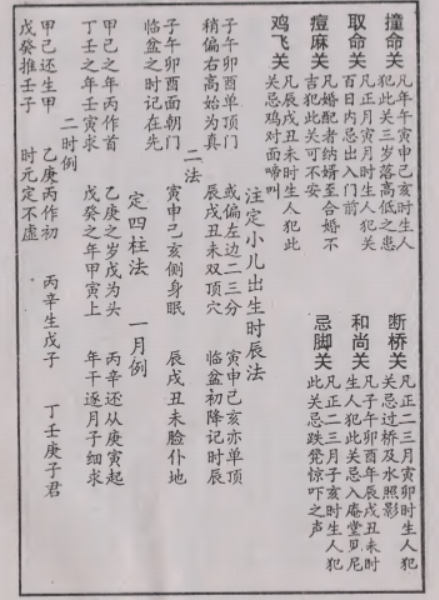 撞命关 凡年午寅申己亥时生人
犯此关三岁落高低之患
断桥关 凡正二三月寅卯时生人犯
关忌过桥及水照影
取命关 凡正月寅月时生人犯关
百日内忌出入门前
和尚关 凡子午卯酉年辰戌丑未时
生人犯此关忌入庵堂见尼
痘麻关 凡婚配者纳婿至合婚不
吉犯此关可不安
忌脚关 凡正二三月子亥时生人犯
此关忌跌凳惊吓之声
鸡飞关 凡辰戌丑未时生人犯此
关忌鸡对面啼叫
注定小儿出生时辰法
子午卯酉单顶门 或偏左边二三分 寅申己亥亦单顶
稍偏右高始为真 辰戌丑未双顶穴 临盆初降记时辰
二法
子午卯酉面朝门 寅申己亥侧身眠 辰戌丑未脸仆地
临盆之时记在先
定四柱法 一月例
甲己之年丙作首 乙庚之岁戊为头 丙辛还从庚寅起
丁壬之年壬寅求 戊癸之年甲寅上 年干逐月子细求
二时例
甲己还生甲 乙庚丙作初 丙辛生戊子 丁壬庚子君
戊癸推壬子 时元定不虚